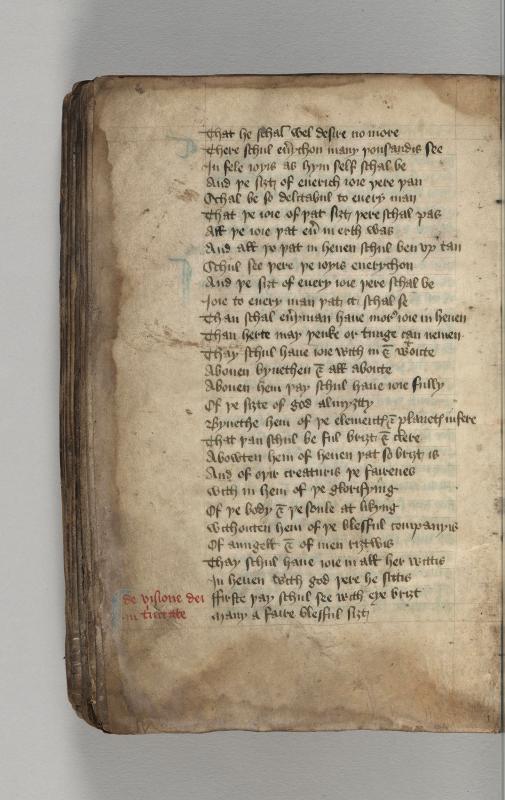 That he schal wel desire no more
There schul eu̅ychon many þousandis see
In fele ioyis as hym self schal be
And þe siȝt of euerich ioie þere þan
Schal be so delitabul to euery man
That þe ioie of þat siȝt þere schal pas
All þe ioie þat eu̅ in erth was
And all þo þat in heuen schul ben vp tan
Schul see þere þe ioyis euerychon
And þe siȝt of euery ioie þere schal be
Ioie to euery man þat it schal se
Than schal eu̅yman haue more ioie in heuen
Than herte may þenke or tunge can nemen
Thay schul haue ioie with in & woute
Abouen bynethen & all aboute
Abouen hem þay schul haue ioie fully
Of þe siȝte of god almyȝtty
Bynethe hem of þe element & planet infere
That þan schul be ful briȝt & clere
Abowten hem of heuen þat so briȝt is
And of oþir creaturis þe fairenes
With in hem of þe glorifying
Of þe body & þe soule at likyng
Withouten hem of þe blesful companyis
Of aungell & of men riȝtwis
Thay schul haue ioie in all her wittis
In heuen with god þere he sittis
de visione dei ffirste þay schul see with eye briȝt
in many a faire blesful siȝt